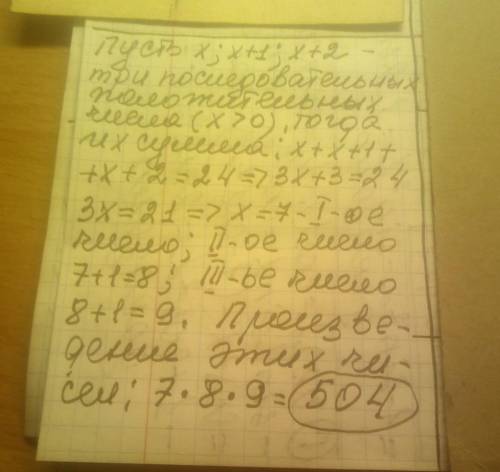 Пусть x; x+1; x+2 -
три последовательных
положительных
числа (x>0), тогда
их сумма: x+x+1+
+x+2=24=>3x+3=24
3x=21=>x=7-I-ое
число; II-ое число
7+1=8; III-ье число
8+1=9. Произве-
дение этих чи-
сел: 7·8·9=504